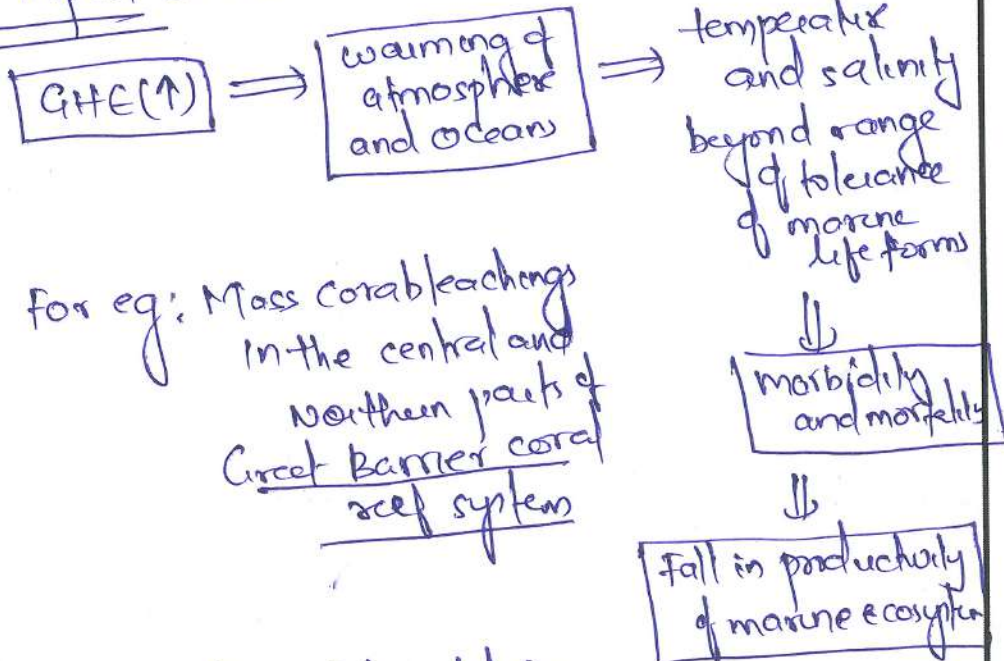 GHE(↑) ⇒
warming of
atmosphere
and oceans
⇒ temperature
and salinity
beyond range
of tolerance
of marine
life forms
⇓
morbidity
and mortality
⇓
Fall in productivity
of marine ecosystem
For eg: Mass corableachings
in the central and
Northern parts of
Great Barrier coral
reef system